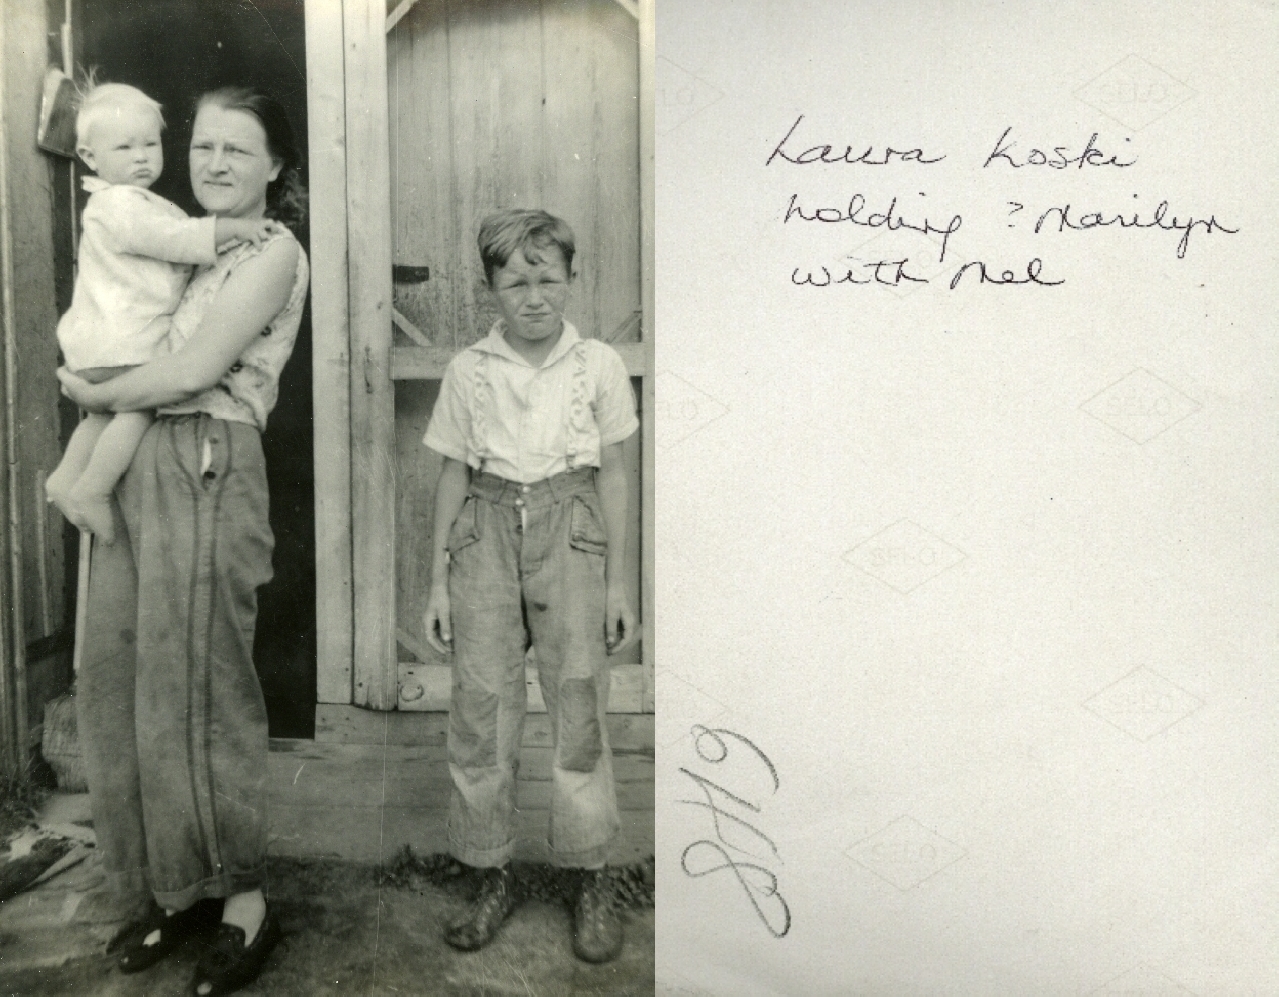 Laura Koski
holding ? Marilyn
with Mel
8H9
VELOX